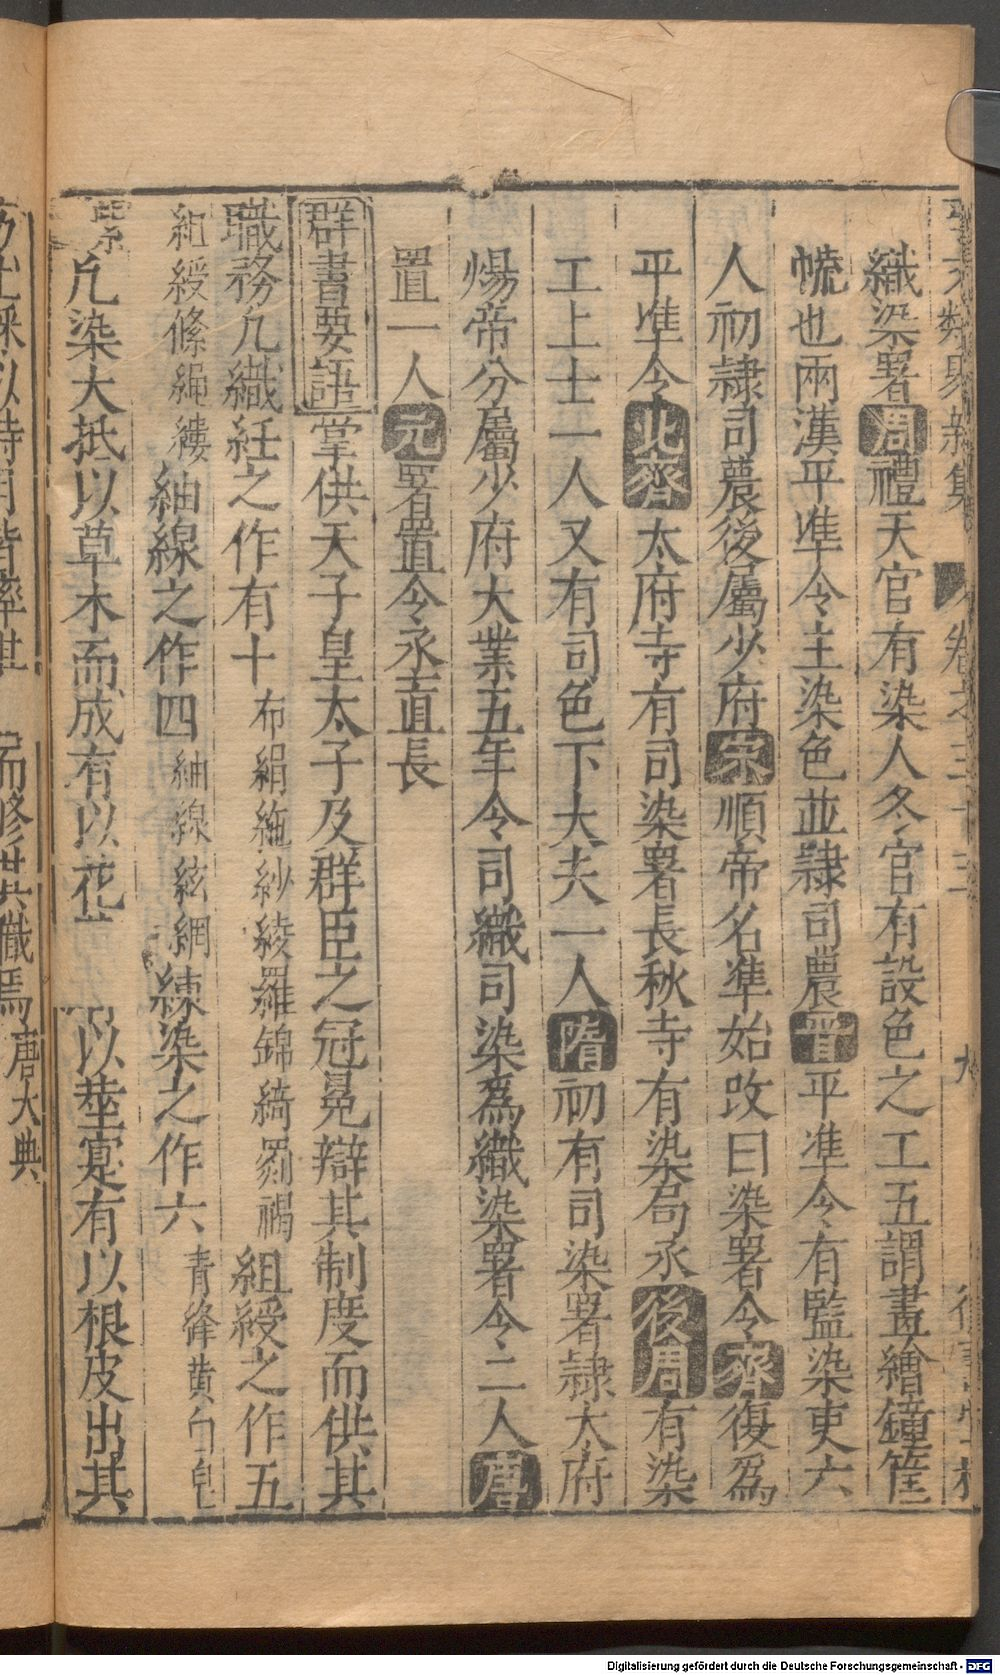 織染署周禮天官有染人冬官有設色之工五謂畫繢鐘筐
㡛也兩漢平準令主染色並隷司農晉平準令有監染吏六
人初隷司農後屬少府宋順帝名準始改曰染署令齊復爲
平準令北齊太府寺有司染署長秋寺有染局丞後周有染
工上士一人又有司色下大夫一人隋初有司染署隷太府
煬帝分屬少府大業五年令司織司染爲織染署令二人唐
置一人元署置令丞直長
群書要語掌供天子皇太子及群臣之冠冕辯其制度而供其
職務凡織紝之作有十布絹絁紗綾羅錦綺𦋺褐組綬之作五
組綬絛繩纓紬線之作四紬線絃網練染之作六青絳黃白皂
紫凡染大抵以草木而成有以花 以莖寔有以根皮出其
唐大典
Digitalisierung gefördert durch die Deutsche Forschungsgemeinschaft - DFG